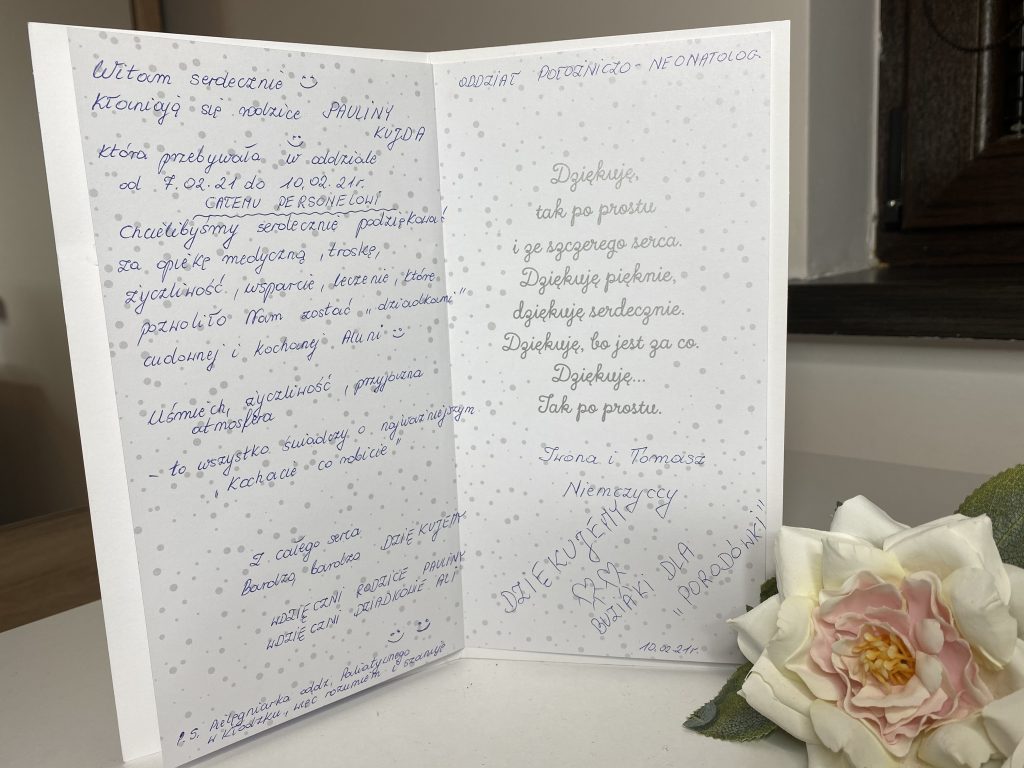 Witam serdecznie
Kłaniają się rodzice PAULINY
KUJDA
która przebywała w oddziale
od 7.02.21 do 10.02.21r.
CAŁEMU PERSONELOWI
Chcielibyśmy serdecznie podziękować
za opiekę medyczną, troskę,
życzliwość, wsparcie, leczenie, które
pozwoliło Nam zostać „dziadkami"
cudownej i kochanej Aluni
Uśmiech, życzliwość, przyjazna
atmosfera
- to wszystko świadczy o najważniejszym
„Kochacie co robicie"
Z całego serca
Bardzo, bardzo DZIĘKUJEMY
WDZIĘCZNI RODZICE PAULINY
WDZIĘCZNI DZIADKOWIE ALI
P.S. Pielęgniarka oddz. Paliatywnego
w Kłodzku, więc rozumiem i szanuję
ODDZIAŁ POŁOŻNICZO-NEONATOLOG.
Dziękuję,
tak po prostu
i ze szczerego serca.
Dziękuję pięknie,
dziękuję serdecznie.
Dziękuję, bo jest za co.
Dziękuję...
Tak po prostu.
Iwona i Tomasz
Niemczyccy
DZIĘKUJEMY
BUZIAKI DLA
„PORODÓWKI"
10.02.21r.